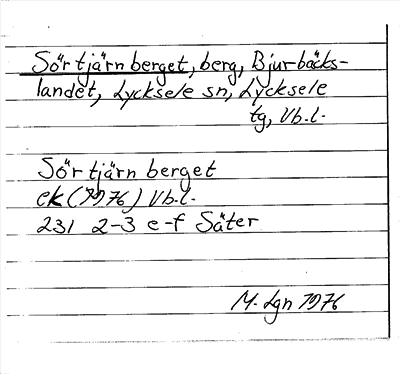 Sörtjärnberget, berg, Bjurbäcks-
landet, Lycksele sn, Lycksele
tg, Vb.l.
Sörtjärnberget
ek (1976) Vb.l.
231 2-3 e-f Säter
M. Lgn 1976